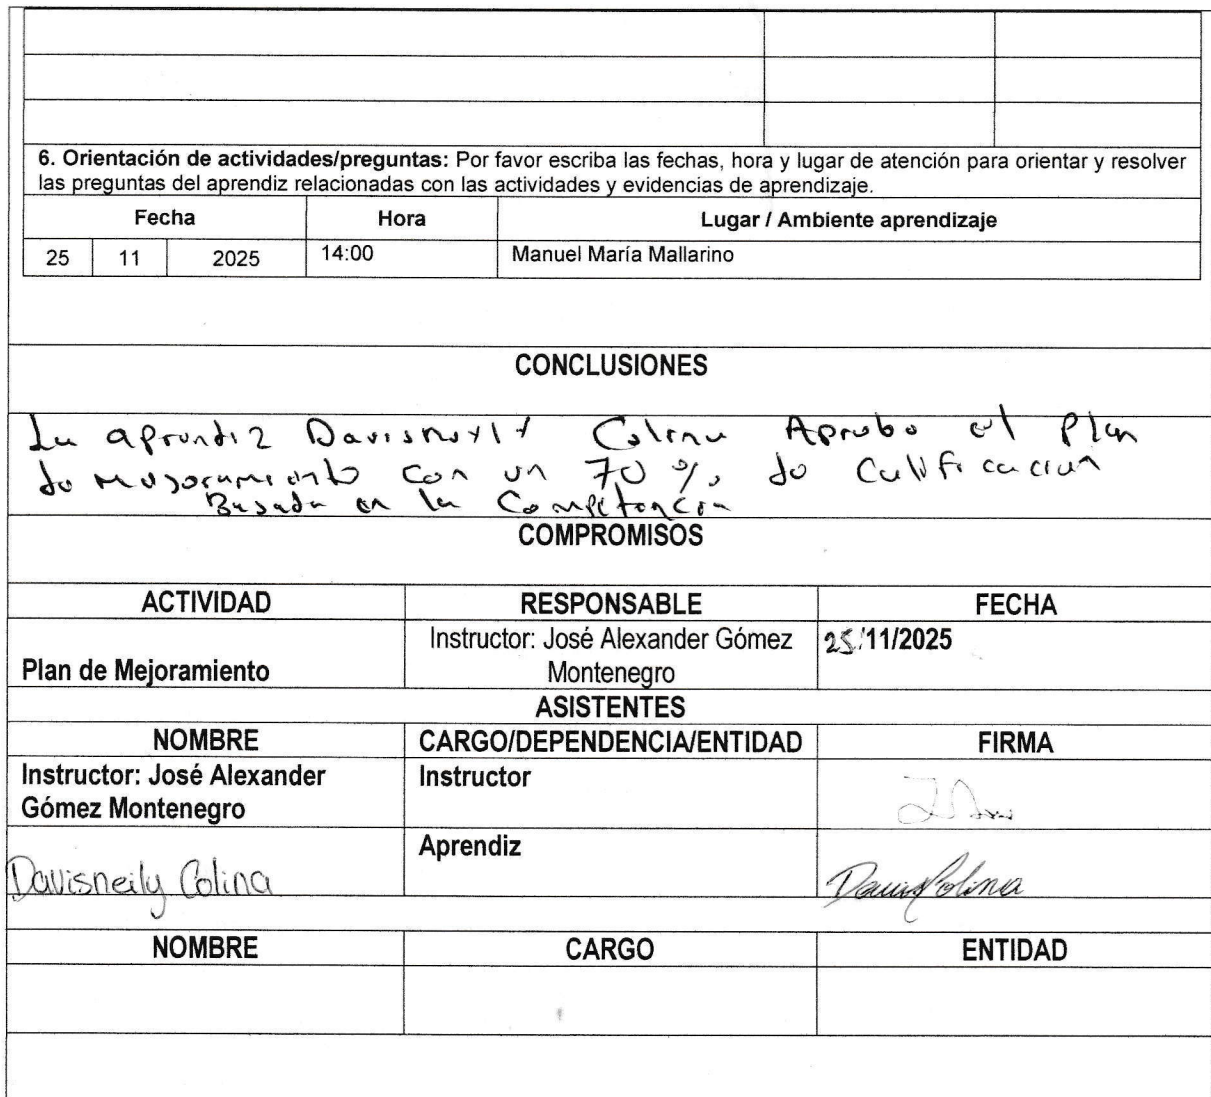 6. Orientación de actividades/preguntas: Por favor escriba las fechas, hora y lugar de atención para orientar y resolver
las preguntas del aprendiz relacionadas con las actividades y evidencias de aprendizaje.
Fecha Hora Lugar / Ambiente aprendizaje
25 11 2025 14:00 Manuel María Mallarino
CONCLUSIONES
La aprendiz Colina Aprobo el Plan
de mejoramiento con un 70 %, de Calificacion
Basada en la Competencia
COMPROMISOS
ACTIVIDAD RESPONSABLE FECHA
Plan de Mejoramiento
Instructor: José Alexander Gómez
Montenegro
25/11/2025
ASISTENTES
NOMBRE CARGO/DEPENDENCIA/ENTIDAD FIRMA
Instructor: José Alexander
Gómez Montenegro
Instructor
Davisneily Colina
Aprendiz
Colina
NOMBRE CARGO ENTIDAD